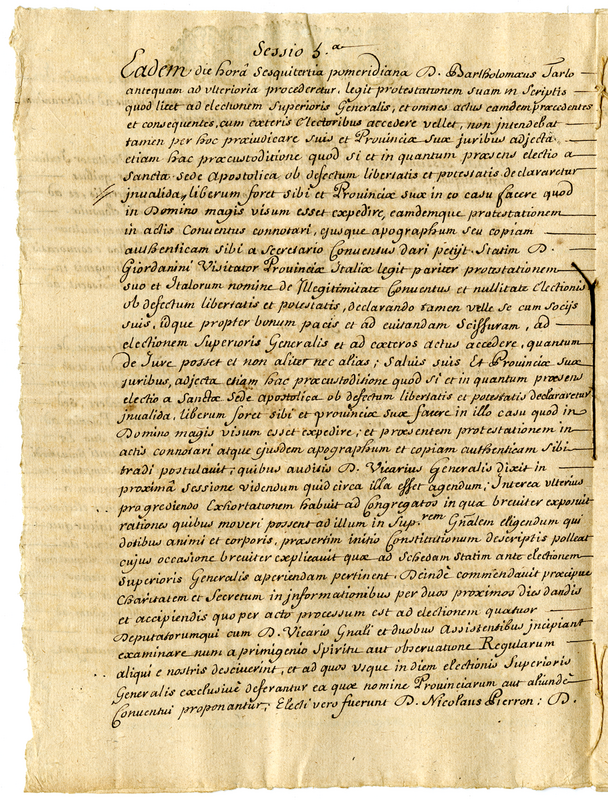 Sessio 5.a
Eadem die horâ Sesquitertia pomeridiana D. Bartholomæus Tarlo
antequam ad vlteriora procederetur, legit protestationem suam in Scriptis
quod licet ad electionem Superioris Generalis, et omnes actus eamdem præcedentes
et consequentes, cum cæteris Electoribus accedere vellet, non intendebat
tamen per hoc præjudicare suis et Provinciæ suæ juribus adjectâ
etiam hac præcustoditione quod si et in quantum præsens electio a
Sancta Sede Apostolica ob defectum libertatis et potestatis declararetur
jnvalida, liberum foret sibi et Provinciæ suæ in eo casu facere quod
in Domino magis visum esset expedire, eamdemque protestationem
in actis Conventus connotari, ejusque apographum seu copiam
authenticam sibi a Secretario Conventus dari petijt. Statim D.
Giordanini Visitator Provinciæ Italiæ legit pariter protestationem
suo et Italorum nomine de Jllegitimitate Conventus et nullitate Electionis
ob defectum libertatis et potestatis, declarando tamen velle se cum Socijs
suis, idque propter bonum pacis et ad euitandam Scissuram, ad
electionem Superioris Generalis et ad cæteros actus accedere, quantum
de Jure posset et non aliter nec alias; Saluis suis Et Provinciæ suæ
juribus, adjecta etiam hac præcustoditione quod si et in quantum præsens
electio a Sancta Sede Apostolica ob defectum libertatis et potestatis declararetur
jnvalida, liberum foret sibi et provinciæ suæ facere in illo casu quod in
Domino magis visum esset expedire; et præsentem protestationem in
actis connotari atque ejusdem apographum et copiam authenticam Sibi
tradi postulauit; quibus auditis D. Vicarius Generalis dixit in
proximâ Sessione videndum quid circa illa esset agendum; Interea vlterius
progrediendo Exhortationem habuit ad Congregatos in qua breuiter exposuit
rationes quibus moveri possent ad illum in Sup.rem Gñalem eligendum qui
dotibus animi et corporis, præsertim initio Constitutionum descriptis polleat
cujus occasione breuiter explicauit quæ ad Schedam Statim ante electionem
Superioris Generalis aperiendam pertinent. Deindè commendauit præcipue
Charitatem et Secretum in jnformationibus per duos proximos dies dandis
et accipiendis quo peracto processum est ad electionem quatuor
Deputatorum qui cum D. Vicario Gnali et duobus Assistentibus jncipiant
examinare num a primigenio Spiritu aut obseruatione Regularum
aliqui e nostris desciverint, et ad quos vsque in diem electionis Superioris
Generalis exclusiuè deferantur ea quæ nomine Provinciarum aut aliundè
Conventui proponantur, Electi vero fuerunt D. Nicolaus Pierron: D.